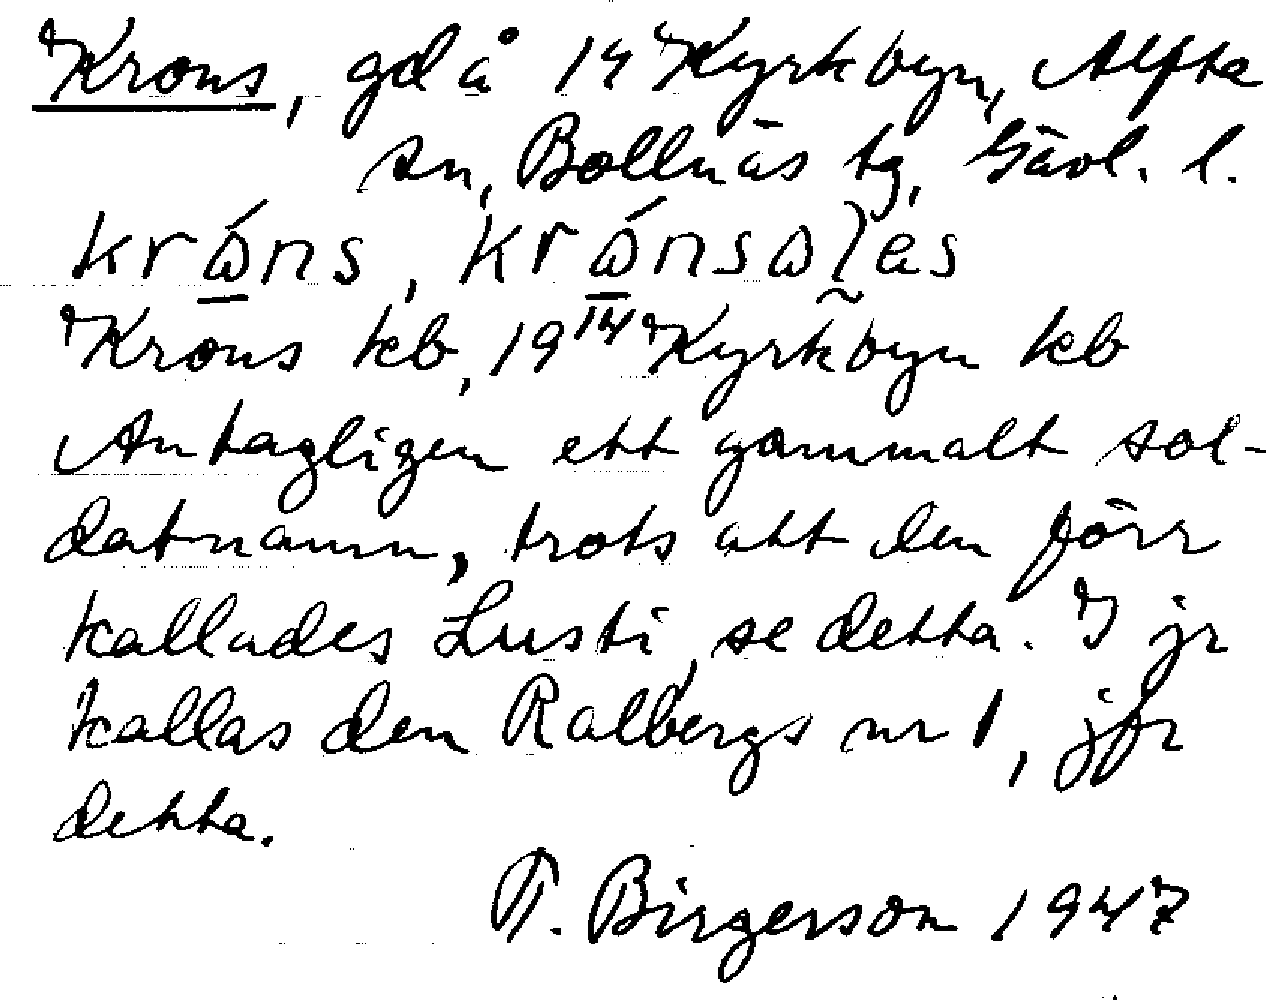 Krons, gd å 14 Kyrkbyn, Alfta
sn, Bollnäs tg, Gävl. l.
Krons kb, 19 14 Kyrkbyn kb
Antagligen ett gammalt sol-
datnamn, trots att den förr
kallades Lusti, se detta. I jr
kallas den Ralbergs nr 1, jfr
detta.
T. Birgerson 1947